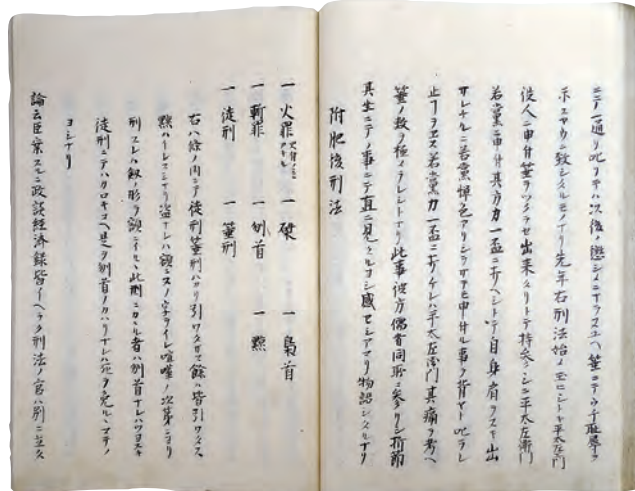 ニテ一通リ叱リテハ次後ノ懲シメニナラスユヘ笞ニテウチ恥辱ヲ
示スヤウニ致シタルモノナリ先年右刑法始メ玉ヒシトキ平太左衛門
役人ニ申付笞ヲツクラセ出来タリトテ持参シニ平太左衛門
若党ニ申付其方力一盃ニ打ヘシトテ自身肩ヲヌキ出
サレタルニ若党憚色アリシラサテモ申付ル事ヲ背ヤト叱ラレ
止コトヲエス若党力一盃ニ打チケレハ平太左衛門其痛ヲ考ヘ
笞ノ数ヲ極メラレシトナリ此事彼方儒者同所ニ参リシ折節
其坐ニテノ事ニテ直ニ見タルヨシ感セシアマリ物語シタルナリ
附肥後刑法
一 火罪 一 磔 一 梟首
一 斬罪 一 刎首 一 黥
一 徒刑 一 笞刑
右ハ條ノ内ニテ徒刑笞刑ハカリ引ワタサス餘ハ皆引ワタス
黥ハ盗ナレハ額ニヌノ字ヲイレ喧嘩ノ次第ニヨリ
刑スレハ釼ノ形ヲ額ニイル、此刑ニカ、ル者ハ刎首ナレハワヌキ
徒刑ニテハカロキユヘ是ヲ刎首ノカハリナレハ死ヲ免ル、マテノ
ヨシナリ
論云臣案スルニ政談経済録皆イヘラク刑法ノ官ハ別ニ立タ